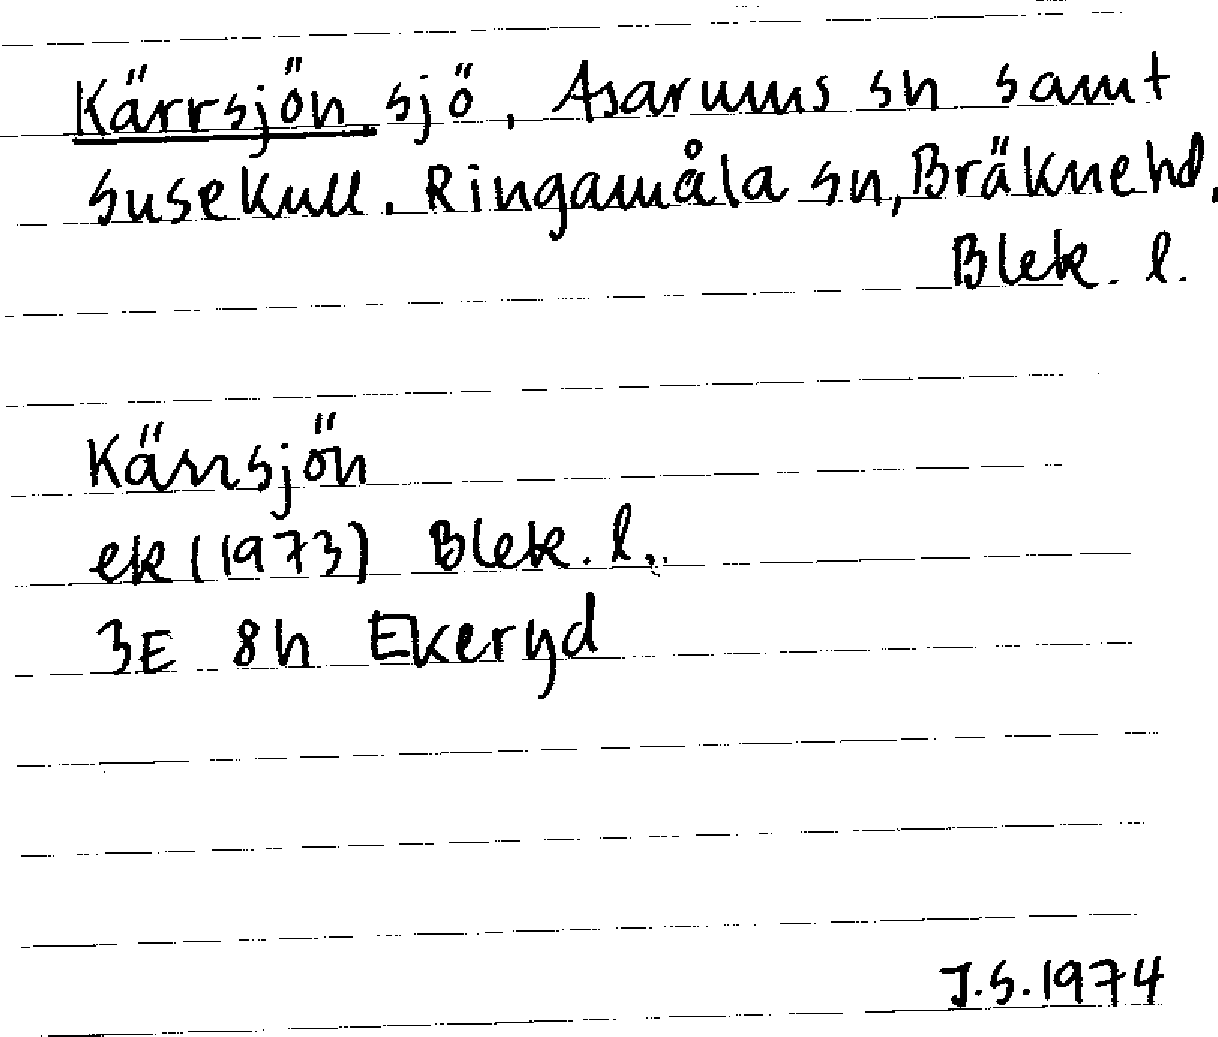 Kärrsjön sjö, Asarums sn samt
Susekull. Ringamåla sn, Bräknehd,
Blek. l.
Kärrsjön
ek (1973) Blek. l.
3E 8h Ekeryd
J.S. 1974